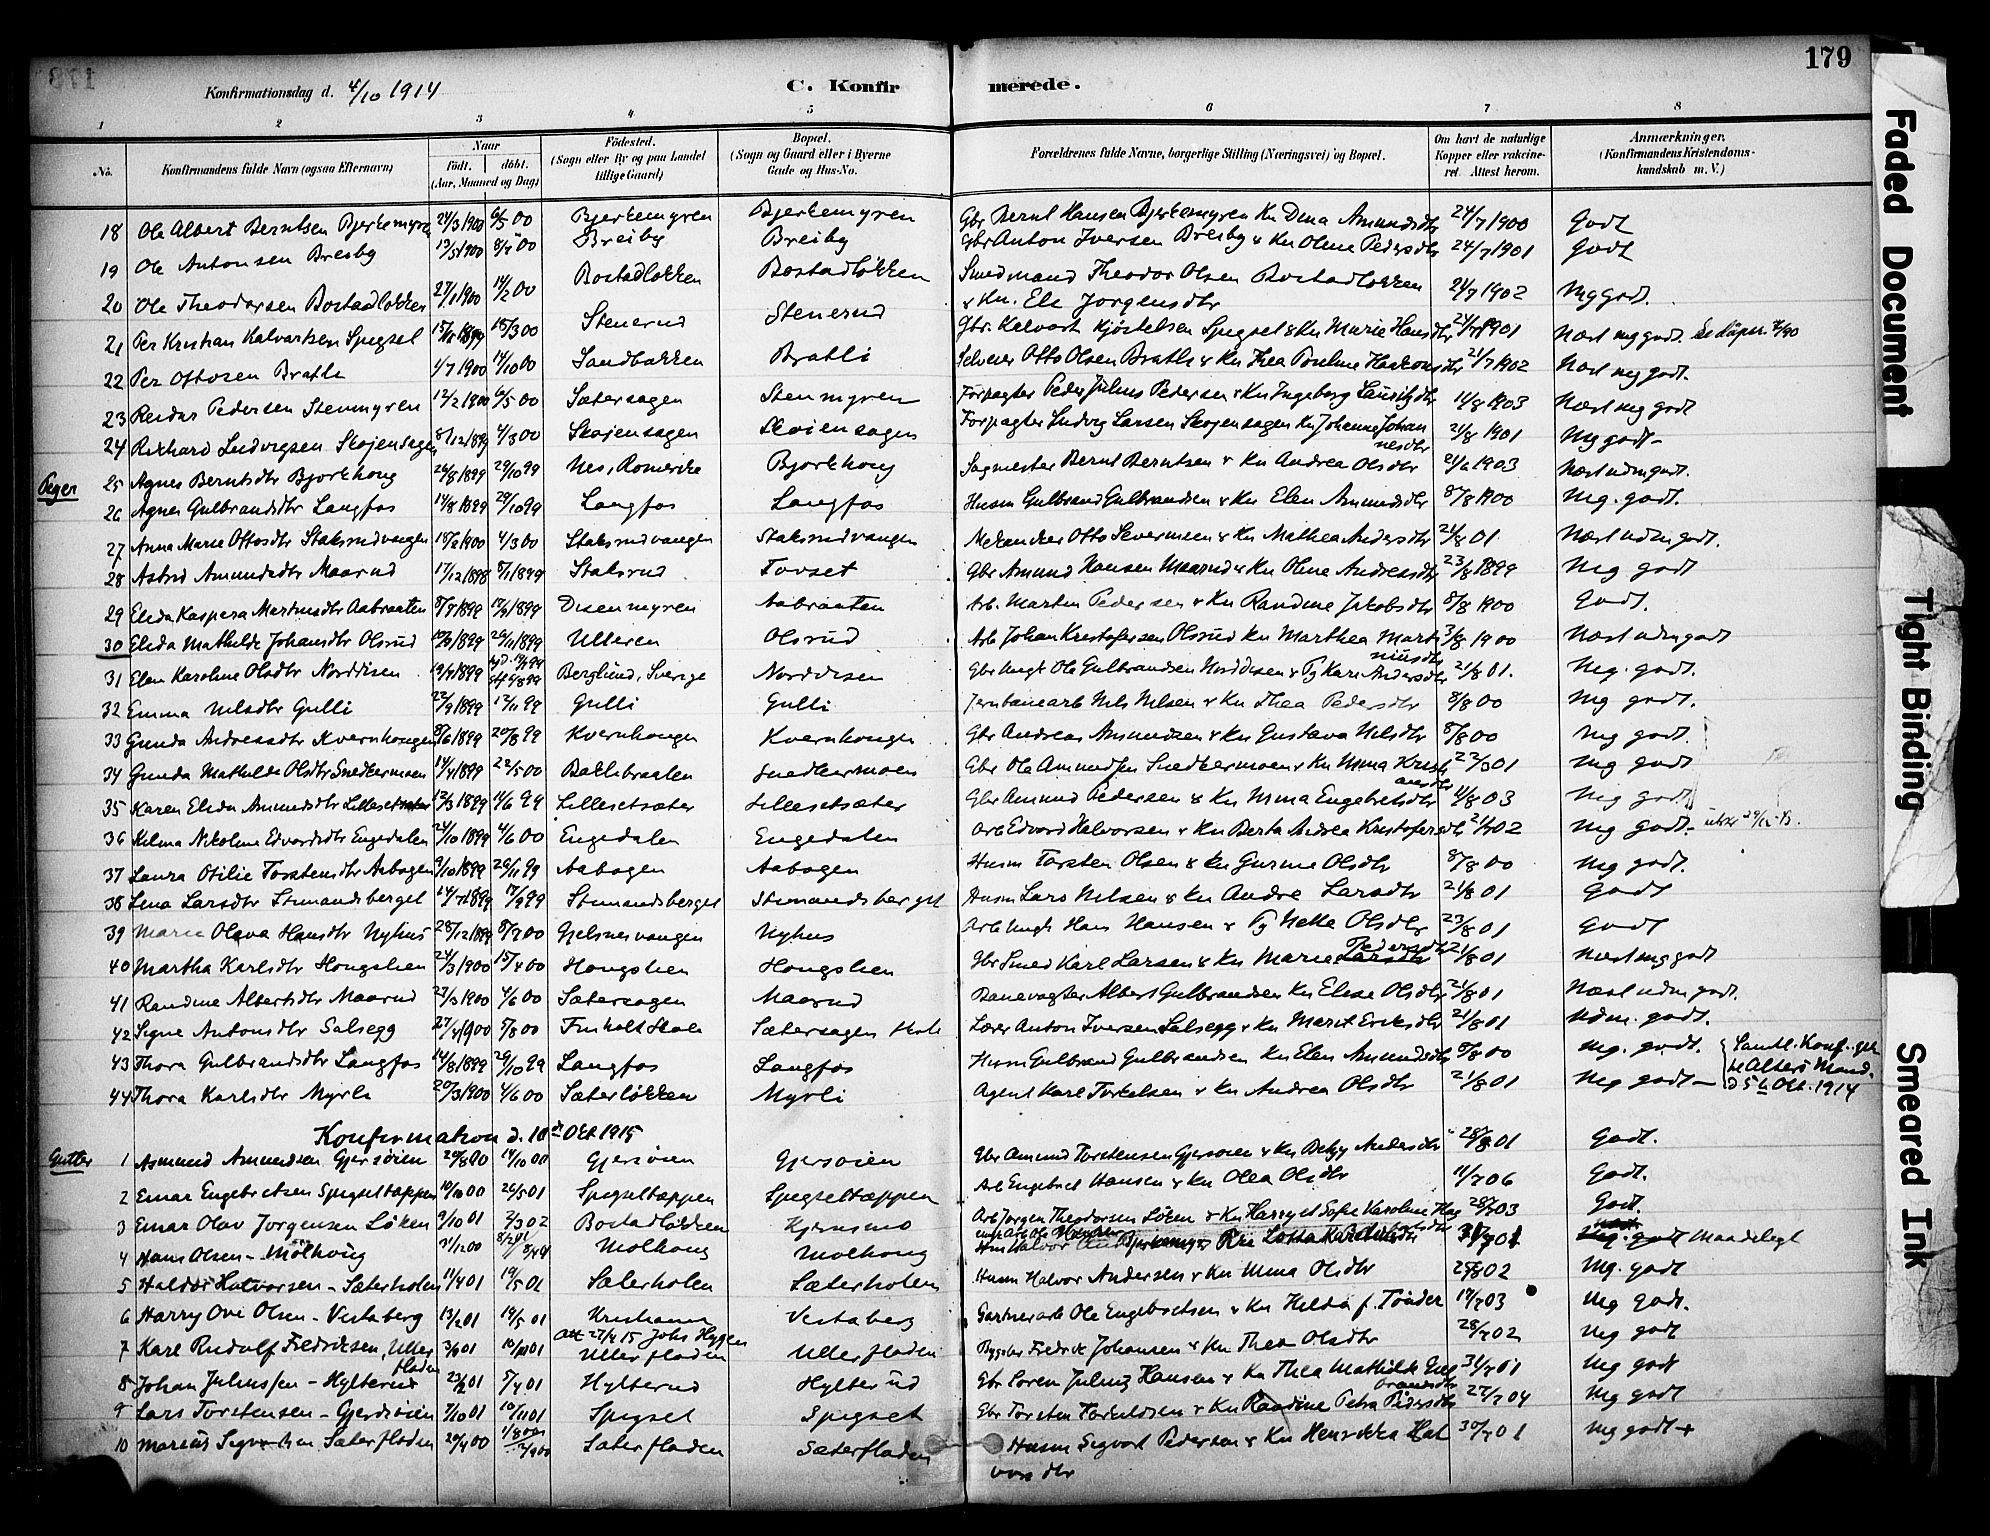 179
Konfirmationsdag d. 4/10 1914
C. Konfirmerede.
1 2 3 4 5 6 7 8
No. Konfirmandens fulde Navn (ogsaa Efternavn) Naar født. døbt. (Aar, Maaned og Dag) Fødested. (Sogn eller By og paa Landet tillige Gaard) Bopæl. (Sogn og Gaard eller i Byerne Gade og Hus-No. Forældrenes fulde Navne, borgerlige Stilling (Næringsvei) og Bopæl. Om havt de naturlige Kopper eller vakcineret. Attest herom. Anmærkninger. (Konfirmandens Kristendomskundskab m. V.)
18 Ole Albert Berntsen Bjerkemyren 24/3 1900 6/5 00 Bjerkemyren Bjerkemyren Gbr Bernt Hansen Bjerkemyren Ku Dina Amundsdtr 24/7 1900 Godt
19 Ole Antonsen Breiby 13/3 1900 Breiby Breiby Gbr Anton Iversen Breiby & Ku Oline Pedersdtr 24/7 1901 Godt
20 Ole Theodorsen Bostadløkken 27/1 1900 14/2 00 Bostadløkken Bostadløkken Smedmand Theodor Olsen Bostadløkken & Ku. Eli Jørgensdtr 24/7 1902 Mg godt.
21 Per Kristian Kalvartsen Spigset 18/3 00 Stenerud Stenerud Gbr. Kelvart Kjøstelsen Spigset & Ku Marie Hansdtr Næst mg godt.
22 Per Ottosen Bratli 1/7 1900 14/10 00 Sandbakken Bratli Selveier Otto Olsen Bratli & Ku Thea Pauline Haakonsdtr 21/7 1902 Næst mg godt.
23 Reidar Pedersen Stenmyren 12/2 1900 6/5 00 Sætersagen Stenmyren Forpagter Peder Julius Pedersen & Ku Ingeborg Lauritzdtr 11/8 1903 Næst mg godt
24 Rikhard Ludvigsen Skøiensagen 8/12 1899 4/3 00 Skøiensagen Skøiensagen Forpagter Ludvig Larsen Skøiensagen Ku Johanne Johannesdtr 21/8 1901 Mg godt-
Piger
25 Agnes Berntsdtr Bjørkhoug 26/8 1899 29/10 99 Nes, Romerike Bjørkhoug Sagmester Bernt Berntsen & Ku Andrea Olsdtr 21/6 1903 Næst udm godt.
26 Agnes Gulbrandsdtr Langfos 14/8 1899 29/10 99 Langfos Langfos Husm Gulbrand Gulbrandsen & Ku Elen Amundsdtr 8/8 1900 Mg. godt.
27 Anna Marie Ottosdtr Staksrudvangen 18/2 1900 4/3 00 Staksrudvangen Staksrudvangen Otto Syverinsen & Ku Mathea Andersdtr 21/8 01 Næst udm godt.
28 Astrid Amundsdtr Maarud 17/12 1898 8/1 1899 Staksrud Tovset Gbr Amund Hansen Maarud & Ku Oline Andreasdtr 23/8 1899 Mg godt
29 Elida Kaspera Martinsdtr Aabraaten 8/7 1899 17/9 1899 Disenmyren Aabraaten Arb. Martin Pedersen & Ku Randine Jakobsdtr 8/8 1900 Godt.
30 Elida Mathilde Johansdtr Olsrud 26/11 1899 Ulleren Olsrud Arb Johan Kristofersen Olsrud Ku Marthea Martiniusdtr 3/8 1900 Næst udm godt
31 Elen Karoline Olsdtr Norddisen 19/4 1899 Berglund, Sverige Norddisen Gbr Ungk Ole Gulbrandsen Norddisen & Pg Kari Andersdtr 21/8 01. Mg. godt.
32 Emma Nilsdtr Gulli 22/9 1899 12/11 99 Gulli Gulli Jernbanearb Nils Nilsen & Ku Thea Pedersdtr 8/8 00 Mg godt.
33 Gunda Andreasdtr Kvernhougen 8/6 1899 20/8 99 Kvernhougen Kvernhougen Gbr Andreas Amundsen & Ku Gustava Nilsdtr 8/8 00 Mg godt.
34 Gunda Mathilde Olsdtr Snedkermoen 14/4 1899 22/5 00 Bakkebraaten Snedkermoen Gbr Ole Amundsen Snedkermoen & Ku Mina Kristiansdtr 22/3 01 Mg godt
35 Karen Elida Amundsdtr Lillesetsæter 12/3 1899 4/6 99 Lillesetsæter Lillesetsæter Gbr Amund Pedersen & Ku Mina Engebretsdtr 4/8 03 Mg godt
36 Helma Nikoline Edvardsdtr Engedalen 24/10 1899 4/6 00 Engedalen Engedalen Arb Edvard Halvorsen & Ku Berta Andrea Kristofersdtr 21/7 02 Mg godt-
37 Laura Otilie Torstensdtr Aabogen 9/10 1899 26/11 99 Aabogen Aabogen Husm Torsten Olsen & Ku Gurine Olsdtr 8/8 00 Mg godt.
38 Lina Larsdtr Stumandsberget 14/7 1899 17/9 99 Stumandsberget Stumandsberget Husm Lars Nilsen & Ku Andre Larsdtr 21/8 01 Godt
39 Marie Olava Hansdtr Nyhus 28/12 1899 8/7 00 Gjelsnesvangen Nyhus Arb Ungk Hans Hansen & Pg Netta Olsdtr 23/8 01 Godt
40 Martha Karlsdtr Hougslien 24/3 1900 15/4 00 Hougslien Hougslien Gbr Smed Karl Larsen & Ku Marie Larsdtr Pedersdtr 21/8 01 Næst mg godt
41 Randine Albertsdtr Maarud 27/3 1900 4/6 00 Sætersagen Maarud Banevogter Albert Gulbrandsen Ku Elise Olsdtr 21/8 01 Næst udm godt.
42 Signe Antonsdtr Salsegg 27/4 1900 5/8 00 Finholt Skole Sætersagen Skole Lærer Anton Iversen Salsegg & Ku Marit Eriksdtr 21/8 01 Udm. godt.
43 Thora Gulbrandsdtr Langfos 14/8 1899 29/10 99 Langfos Langfos Husm Gulbrand Gulbrandsen Ku Elen Amundsdtr 8/8 00 Mg. godt.
44 Thora Karlsdtr Myrli 20/3 1900 4/6 00 Sæterløkken Myrli Agent Karl Torkelsen & Ku Andrea Olsdtr 21/8 01 Mg godt-
Samtl. Konf. gik til Alters Mand. d 5te Okt. 1914
Konfirmation d. 10de Okt 1915
Gutter
1 Asmund Amundsen Gjersøien 20/8 00 14/10 00 Gjersøien Gjersøien Gbr Amund Torstensen Gjersøien & Ku Betzy Andersdtr 01 Godt.
2 Einar Engebretsen Spigseltæppen 10/10 00 26/5 01 Spigseltæppen Spigseltæppen Arb Engebret Hansen & Ku Olea Olsdtr 11/7 06 Godt.
3 Einar Olav Jørgensen Løken 9/10 01 2/3 02 Bostadløkken Kjernsmo Arb Jørgen Theodorsen Løken & Ku Harryet Sofie Karoline 28/7 03 Godt.
4 Hans Olsen - Mølhoug 31/12 00 Mølhoug Mølhoug 31/7 01 Maadeligt
5 Haldor Halvorsen - Sæterholen 11/4 01 19/5 01 Sæterholen Sæterholen Husm Halvor Andersen & Ku Mina Olsdtr 02 Mg. godt
6 Harry Ove Olsen - Vestaberg 13/2 01 19/5 01 Kristiania Vestaberg Gartnerarb Ole Engebretsen & Ku Hilda f. Tönder 17/7 03 Mg godt.
Att 27/4 15 Johs Hygen
7 Karl Rudolf Fredriksen, Ullerfloden 3/6 01 Ullerfloden Ullerfloden Fredrik Johansen & Ku Thea Olsdtr 28/7 02 Mg godt
8 Johan Juliussen - Hylterud 23/2 01 5/4 01 Hylterud Hylterud Gbr Soren Julius Hansen & Ku Thea Mathilde 31/7 01 Mg godt
9 Lars Torstensen - Gjersøien 7/10 01 10/11 01 Spigset Spigset Gbr Torsten & Ku Randine Petra Pedersdtr 27/7 04 Mg godt
10 Marius Sigvartsen Sæterfloden 20/4 00 Sæterfloden Sæterfloden Husm Sigvart Pedersen & Ku Henrikka Halvorsdtr 30/7 01 Mg godt +
Faded Document
Tight Binding
Smeared Ink